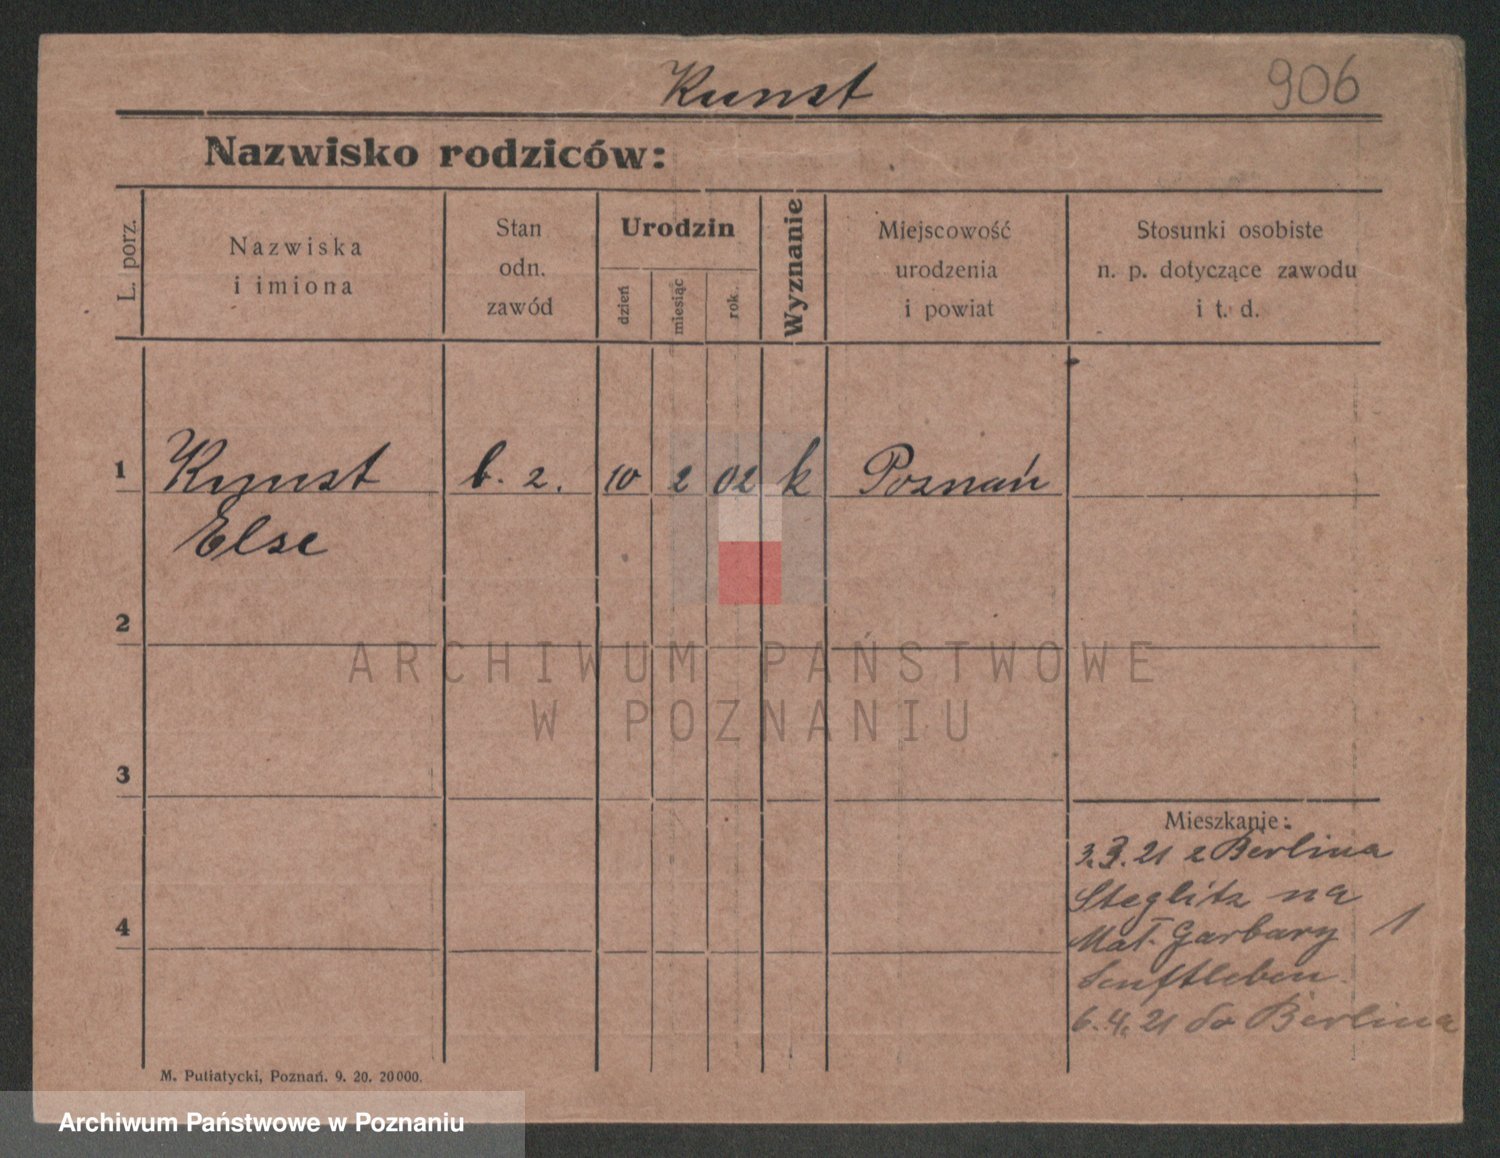 Kunst
906
Nazwisko rodziców:
L. porz.
Nazwiska
i imiona
Stan
odn.
zawód
Urodzin
dzień
miesiąc
rok.
Wyznanie
Miejscowość
urodzenia
i powiat
Stosunki osobiste
n. p. dotyczące zawodu
i t. d.
1 Kunst b. z. 10 2 02 k Poznań
Else
2
ARCHIWUM PAŃSTWOWE
W POZNANIU
3
Mieszkanie:
3.3.21 z Berlina
Steglitz na
4
Mał. Garbary 1
Senftleben
6.4.21 do Berlina
M. Putiatycki, Poznań. 9. 20. 20000.
Archiwum Państwowe w Poznaniu